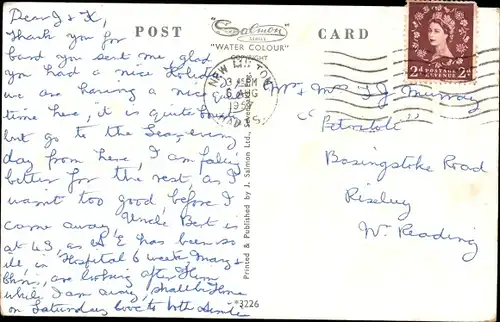 Dear J & K,
Thank you for
card you sent me glad
you had a nice holiday
we are having a nice quiet
time here, it is quite
but go to the Sea, every
day from here, I am feeling
better for the rest, as I
wasnt too good, before I
came away, Uncle Bert is
at 43, as A E has been so
ill in Hospital 6 weeks, Mary &
are looking after Him
while I am away, shall be Home
on Saturday love to both
POST CARD
Salmon
SERIES
"WATER COLOUR"
COPYRIGHT
NEW MILTON
6 AUG
195
HANTS.
POSTAGE
REVENUE
2d 2d
Mr & Mrs T J Murray
"
Basingstoke Road
Riseley
Nr Reading
Printed & Published by J. Salmon Ltd., Sevenoaks, Eng.
*3226